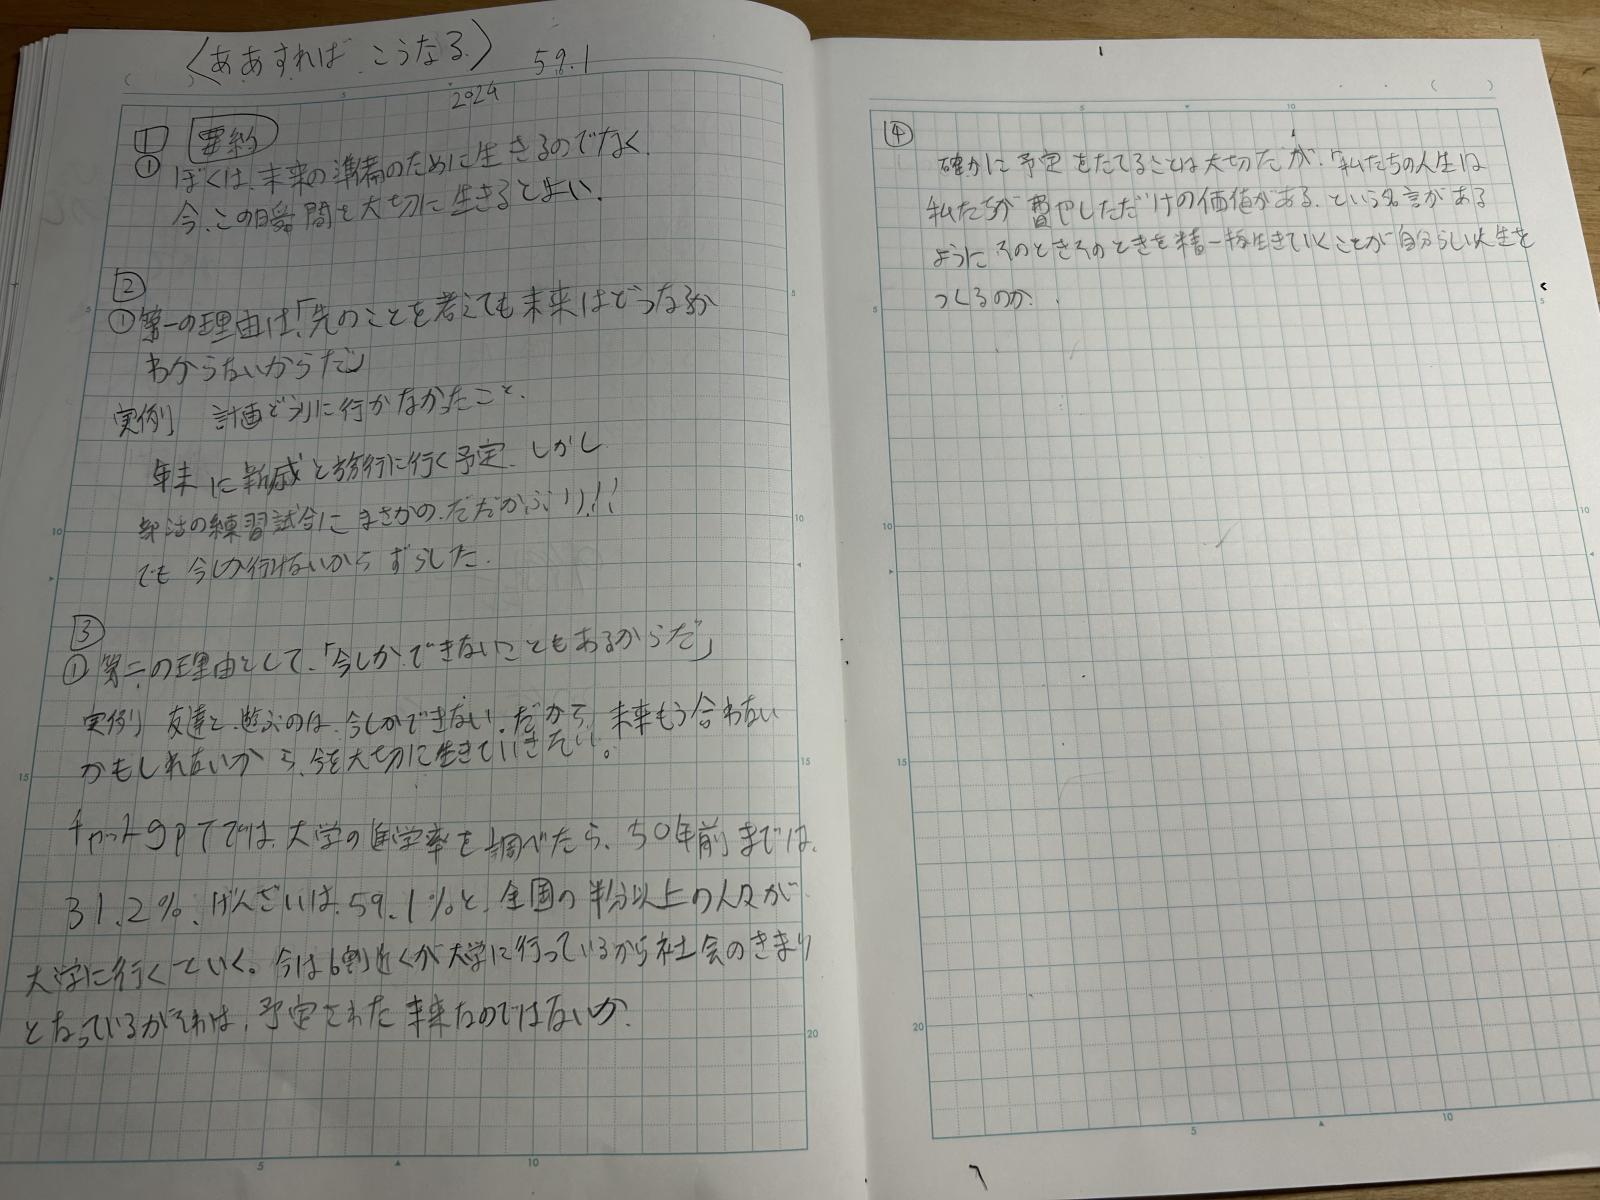 〈ああすれば こうなる〉 59.1
2024
1 要約
① ぼくは、未来の準備のために生きるのでなく、
今、この瞬間を大切に生きるとよい。
2
① 第一の理由は、「先のことを考えても未来はどうなるか
わからないからだ」
実例 計画どうりに行かなかったこと、
年末に親戚と旅行に行く予定、しかし
部活の練習試合にまさかの、だだかぶり!!
でも今しか行けないからずらした。
3
① 第二の理由として、「今しかできないこともあるからだ」
実例 友達と遊ぶのは、今しかできない。だから、未来もう合わない
かもしれないから、今を大切に生きていきたい。
チャットgpTでは、大学の進学率を調べたら、50年前までは、
31.2%、げんざいは、59.1%と、全国の半分以上の人々が
大学に行くていく。今は6割近くが大学に行っているから社会のきまり
となっているがそれは、予定された未来なのではないか。
④
確かに予定をたてることは大切だが、「私たちの人生は
私たちが費やしただけの価値がある、という名言がある
ようにそのときそのときを精一杯生きていくことが自分らしい人生を
つくるのか。